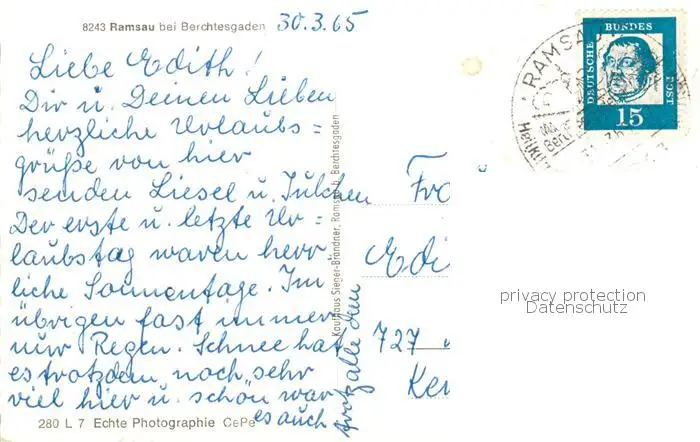 8243 Ramsau bei Berchtesgaden
30.3.65
Liebe Edith!
Dir u. Deinen Lieben
herzliche Urlaubs=
grüße von hier
senden Liesel u. Julchen
Der erste u. letzte Ur=
laubstag waren herr
liche Sonnentage. Im
übrigen fast immer
nur Regen. Schnee hat
es trotzdem noch sehr
viel hier u. schön war
es auch
trotz alle dem
280 L 7 Echte Photographie CePe
Kaufhaus Sieger-Brandner, Ramsau b. Berchtesgaden
RAMSAU
DEUTSCHE BUNDES POST
15
Edi
727
privacy protection
Datenschutz